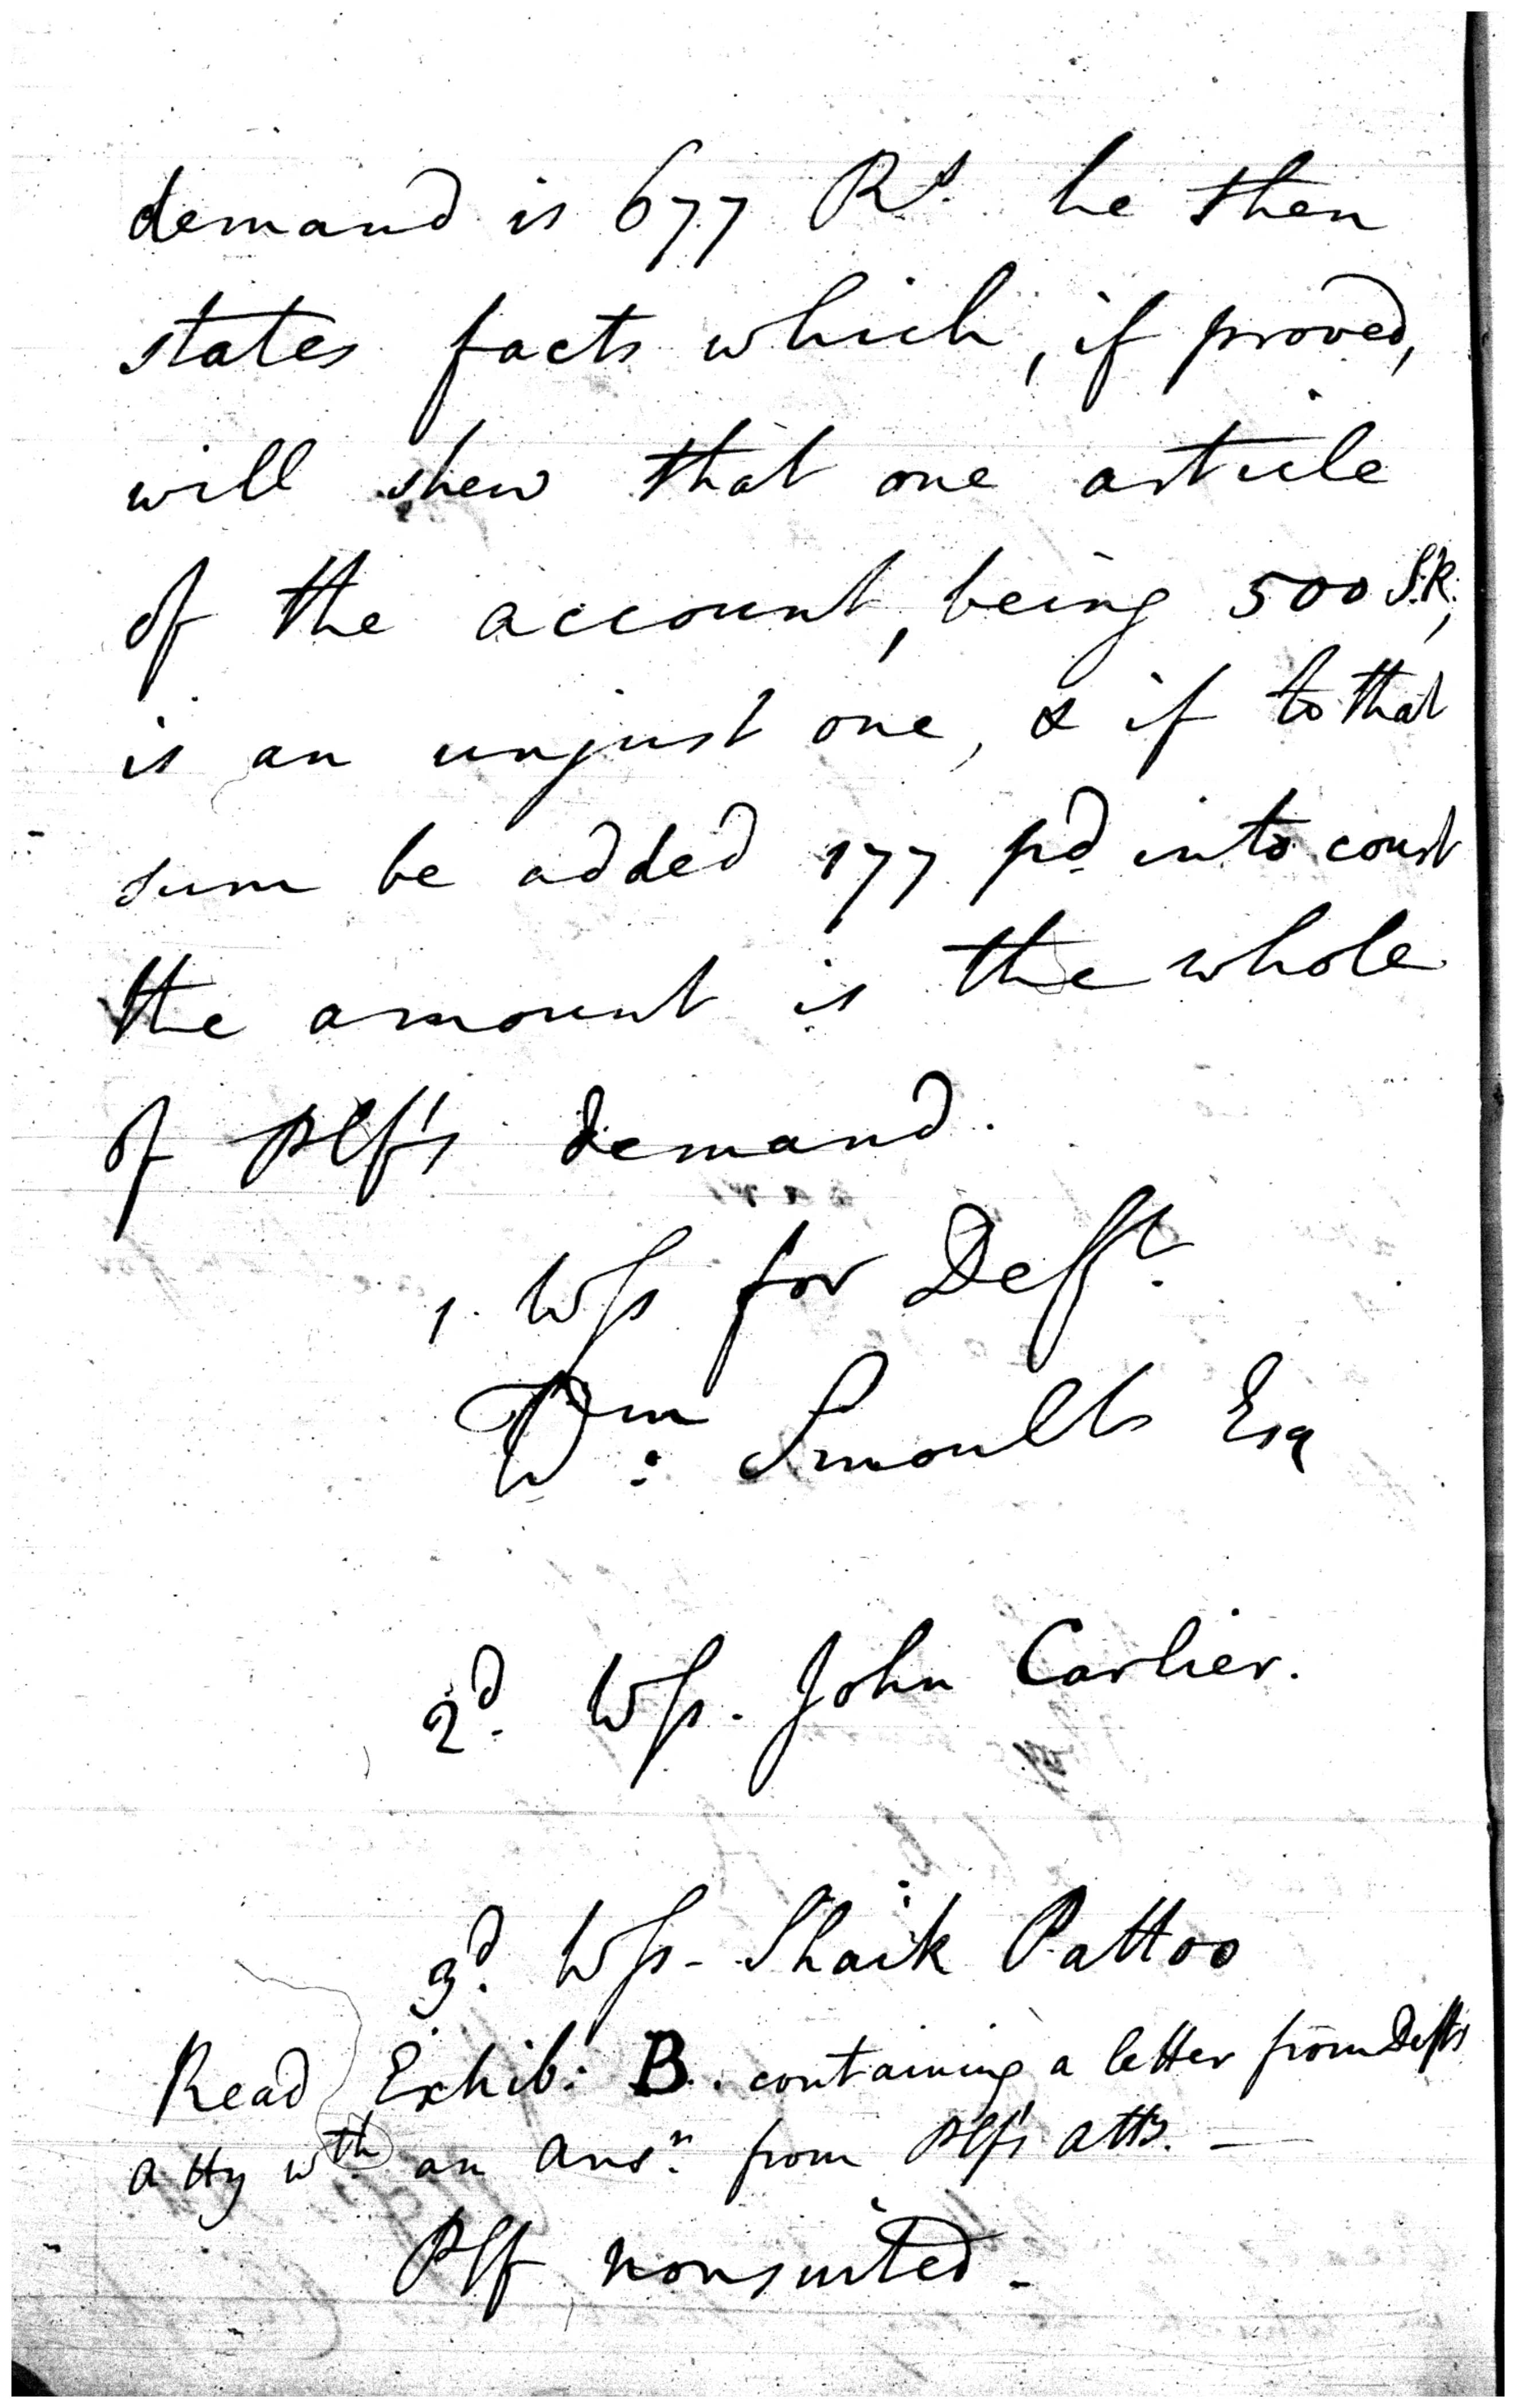 demand is 677 Rs. he then
states facts which, if proved,
will shew that one article
of the account, being 500 S.R.,
is an unjust one, & if to that
sum be added 177 pd. into court
the amount is the whole
of Plf's demand.
1. Wss for Deft.
Wm: Smoults Esq
2d. Wss. John Carlier.
3d. Wss - Shaik Pattoo
Read Exhib: B. containing a letter from Defts
atty wth an Ansr. from Plf's atty. —
Plf nonsuited -